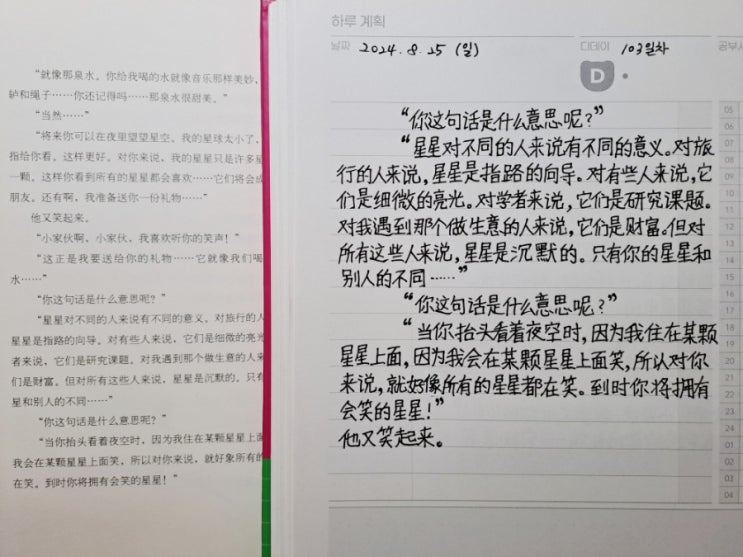 “就像那泉水。你给我喝的水就像音乐那样美妙，
轳和绳子……你还记得吗……那泉水很甜美。”
“当然……”
“将来你可以在夜里望望星空。我的星球太小了，
指给你看。这样更好。对你来说，我的星星只是许多星
一颗。这样你看到所有的星星都会喜欢……它们将会成
朋友。还有啊，我准备送你一份礼物……”
他又笑起来。
“小家伙啊，小家伙，我喜欢听你的笑声！”
“这正是我要送给你的礼物……它就像我们喝
水……”
“你这句话是什么意思呢？”
“星星对不同的人来说有不同的意义。对旅行的人
星星是指路的向导。对有些人来说，它们是细微的亮光
者来说，它们是研究课题。对我遇到那个做生意的人来
们是财富。但对所有这些人来说，星星是沉默的。只有
星和别人的不同……”
“你这句话是什么意思呢？”
“当你抬头看着夜空时，因为我住在某颗星星上面
我会在某颗星星上面笑，所以对你来说，就好象所有的
在笑。到时你将拥有会笑的星星！”
하루 계획
날짜 2024.8.25 (일)
디데이 103일차
공부시
D
“你这句话是什么意思呢？”
“星星对不同的人来说有不同的意义。对旅
行的人来说，星星是指路的向导。对有些人来说，它
们是细微的亮光。对学者来说，它们是研究课题。
对我遇到那个做生意的人来说，它们是财富。但对
所有这些人来说，星星是沉默的。只有你的星星和
别人的不同……”
“你这句话是什么意思呢？”
“当你抬头看着夜空时，因为我住在某颗
星星上面，因为我会在某颗星星上面笑，所以对你
来说，就好像所有的星星都在笑。到时你将拥有
会笑的星星！”
他又笑起来。
05
06
07
08
09
10
11
12
13
14
15
16
17
18
19
20
21
22
23
24
01
02
03
04